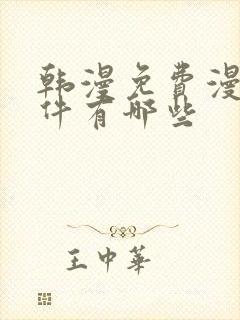 韩漫免费漫
件有哪些
王中華